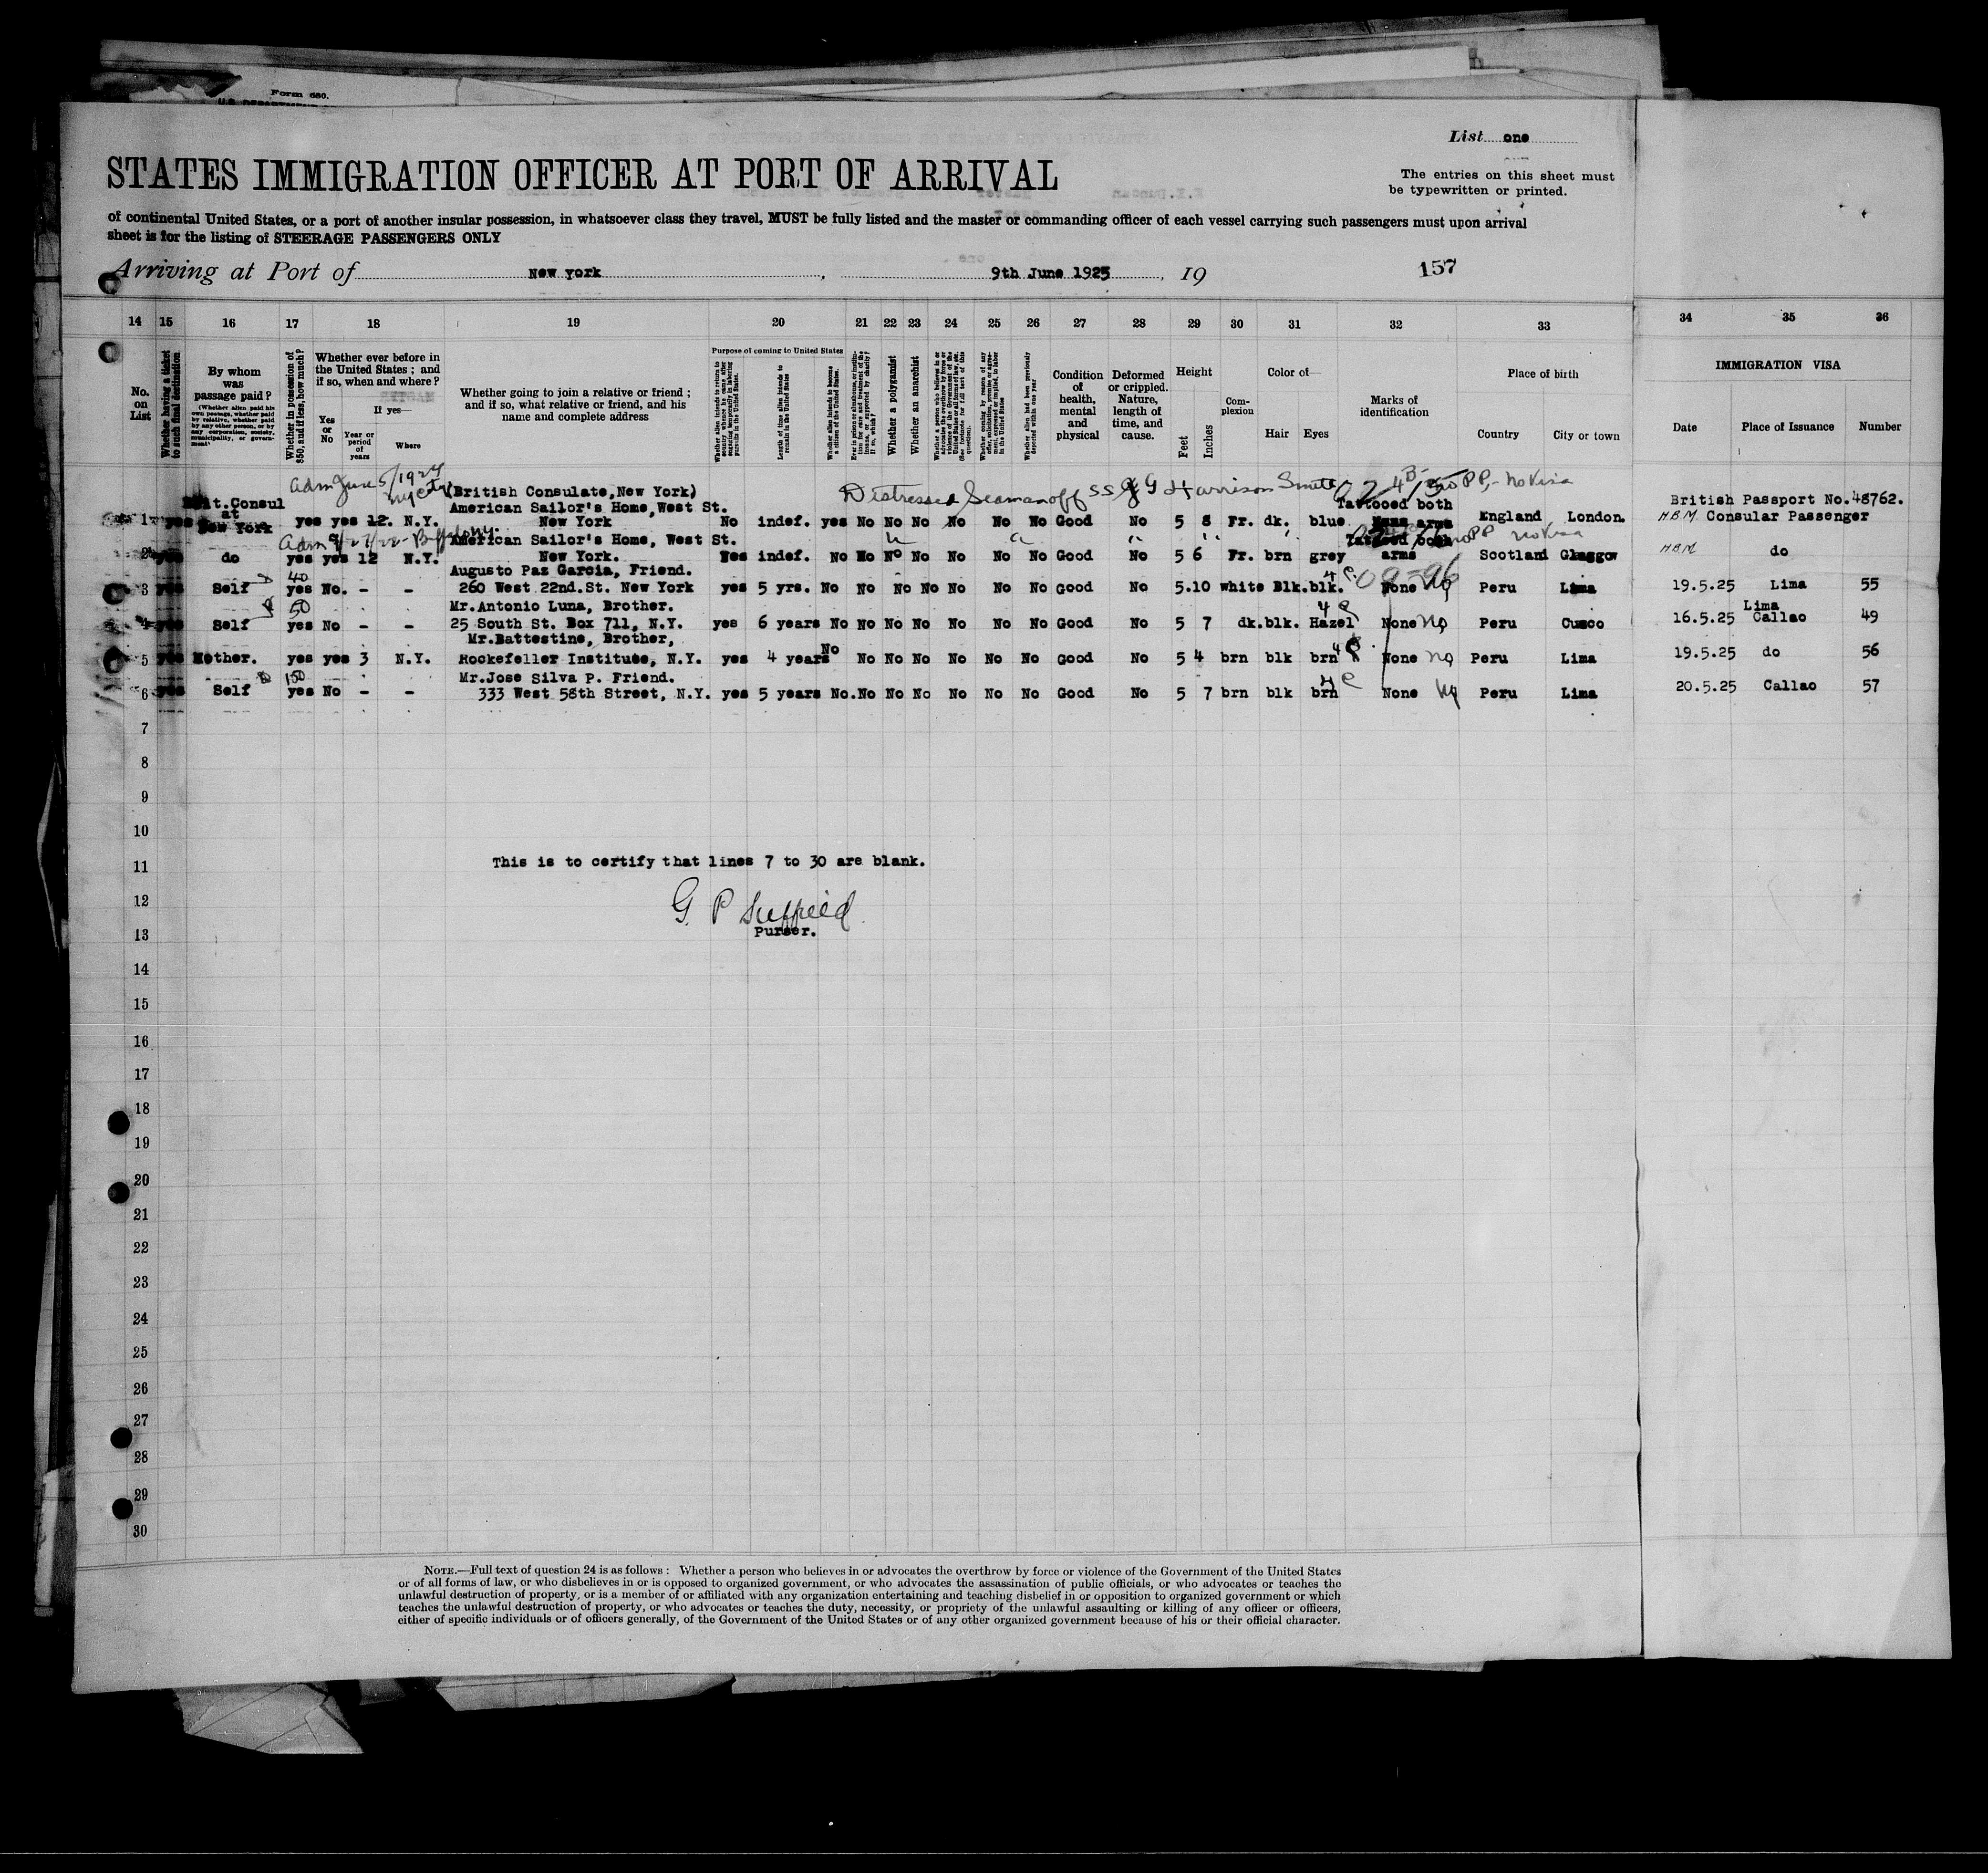 Form 680.
List one
STATES IMMIGRATION OFFICER AT PORT OF ARRIVAL
The entries on this sheet must
be typewritten or printed.
of continental United States, or a port of another insular possession, in whatsoever class they travel, MUST be fully listed and the master or commanding officer of each vessel carrying such passengers must upon arrival
sheet is for the listing of STEERAGE PASSENGERS ONLY
Arriving at Port of New York, 9th June 1925, 19
157
14 15 16 17 18 19 20 21 22 23 24 25 26 27 28 29 30 31 32 33 34 35 36
No. on List
Whether having a ticket to such final destination
By whom was passage paid?
(Whether alien paid his own passage, whether paid by relative, whether paid by any other person, or by any corporation, society, municipality, or government)
Whether in possession of $50, and if less, how much?
Whether ever before in the United States; and if so, when and where?
Yes or No
If yes—
Year or period of years
Where
Whether going to join a relative or friend; and if so, what relative or friend, and his name and complete address
Purpose of coming to United States
Whether alien intends to return to country whence he came after engaging temporarily in laboring pursuits in the United States.
Length of time alien intends to remain in the United States
Whether alien intends to become a citizen of the United States.
Whether a polygamist
Whether an anarchist
Whether alien had been previously deported within one year
Condition of health, mental and physical
Deformed or crippled. Nature, length of time, and cause.
Height
Feet
Inches
Complexion
Color of—
Hair Eyes
Marks of identification
Place of birth
Country City or town
IMMIGRATION VISA
Date Place of Issuance Number
Adm June 5/1924
Distressed Seaman off SS J G Harrison Smith
no PP,- no Visa
Brit.Consul at New York
(British Consulate,New York)
American Sailor's Home,West St.
Tattooed both
British Passport No.48762.
1 yes yes yes 12. N.Y. New York No indef. yes No No No No No No Good No 5 8 Fr. dk. blue arms England London. H.B.M. Consular Passenger
Adm 9/27/22- Buffalo NY.
American Sailor's Home, West St.
Tattooed both
no PP no Visa
2 yes do yes yes 12 N.Y. New York. Yes indef. No No No No No No No Good No 5 6 Fr. brn grey arms Scotland Glasgow H.B.M. do
40
Augusto Paz Garcia, Friend.
3 yes Self yes No. - - 260 West 22nd.St. New York yes 5 yrs. No No No No No No No Good No 5.10 white Blk.blk. None No Peru Lima 19.5.25 Lima 55
50
Mr.Antonio Luna, Brother.
Lima
4 yes Self yes No - - 25 South St. Box 711, N.Y. yes 6 years No No No No No No No Good No 5 7 dk.blk. Hazel None No Peru Cusco 16.5.25 Callao 49
Mr.Battestine, Brother,
5 yes Mother. yes yes 3 N.Y. Rockefeller Institute, N.Y. yes 4 years No No No No No No No Good No 5 4 brn blk brn None No Peru Lima 19.5.25 do 56
150
Mr.Jose Silva P. Friend.
6 yes Self yes No - - 333 West 58th Street, N.Y. yes 5 years No.No No No No No No Good No 5 7 brn blk brn None No Peru Lima 20.5.25 Callao 57
7
8
9
10
11
This is to certify that lines 7 to 30 are blank.
12
13
Purser.
14
15
16
17
18
19
20
21
22
23
24
25
26
27
28
29
30
NOTE.—Full text of question 24 is as follows: Whether a person who believes in or advocates the overthrow by force or violence of the Government of the United States
or of all forms of law, or who disbelieves in or is opposed to organized government, or who advocates the assassination of public officials, or who advocates or teaches the
unlawful destruction of property, or is a member of or affiliated with any organization entertaining and teaching disbelief in or opposition to organized government or which
teaches the unlawful destruction of property, or who advocates or teaches the duty, necessity, or propriety of the unlawful assaulting or killing of any officer or officers,
either of specific individuals or of officers generally, of the Government of the United States or of any other organized government because of his or their official character.